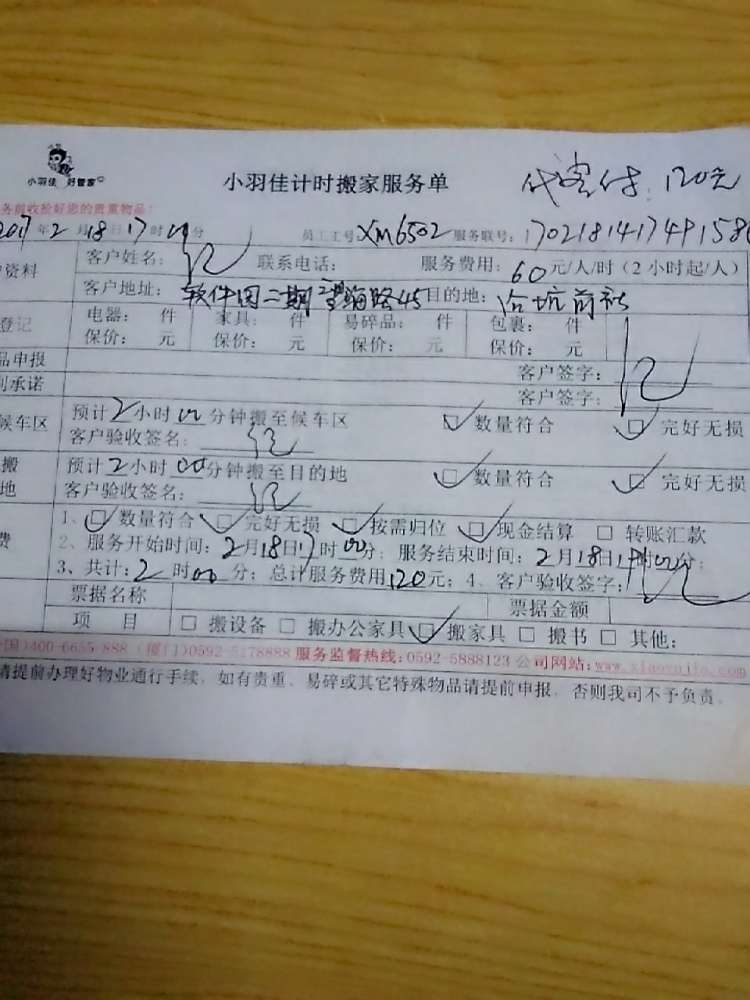 小羽佳 好管家
小羽佳计时搬家服务单 代客付:120元
务前收捡好您的贵重物品!
2017年2月18日17时00分 员工工号XM6502 服务联号:
资料 客户姓名: 联系电话: 服务费用:60元/人/时(2小时起/人)
客户地址:软件园二期望海路45 目的地:洽坑前社
登记 电器: 件 家具: 件 易碎品: 件 包裹: 件
保价: 元 保价: 元 保价: 元 保价: 元
品申报 客户签字:
别承诺 客户签字:
候车区 预计2小时00分钟搬至候车区 ☑数量符合 ☑完好无损
客户验收签名:
搬 预计2小时00分钟搬至目的地 ☑数量符合 ☑完好无损
地 客户验收签名:
1、☑数量符合 ☑完好无损 ☑按需归位 ☑现金结算 □转账汇款
费 2、服务开始时间:2月18日17时00分;服务结束时间:2月18日19时00分;
3、共计:2时00分;总计服务费用120元;4、客户验收签字:
票据名称 票据金额
项 目 □搬设备 □搬办公家具 ☑搬家具 □搬书 □其他:
国)400-6655-888 (厦门)0592-5178888 服务监督热线:0592-5888123 公司网站:www.xiaoyujia.com
请提前办理好物业通行手续,如有贵重、易碎或其它特殊物品请提前申报,否则我司不予负责。